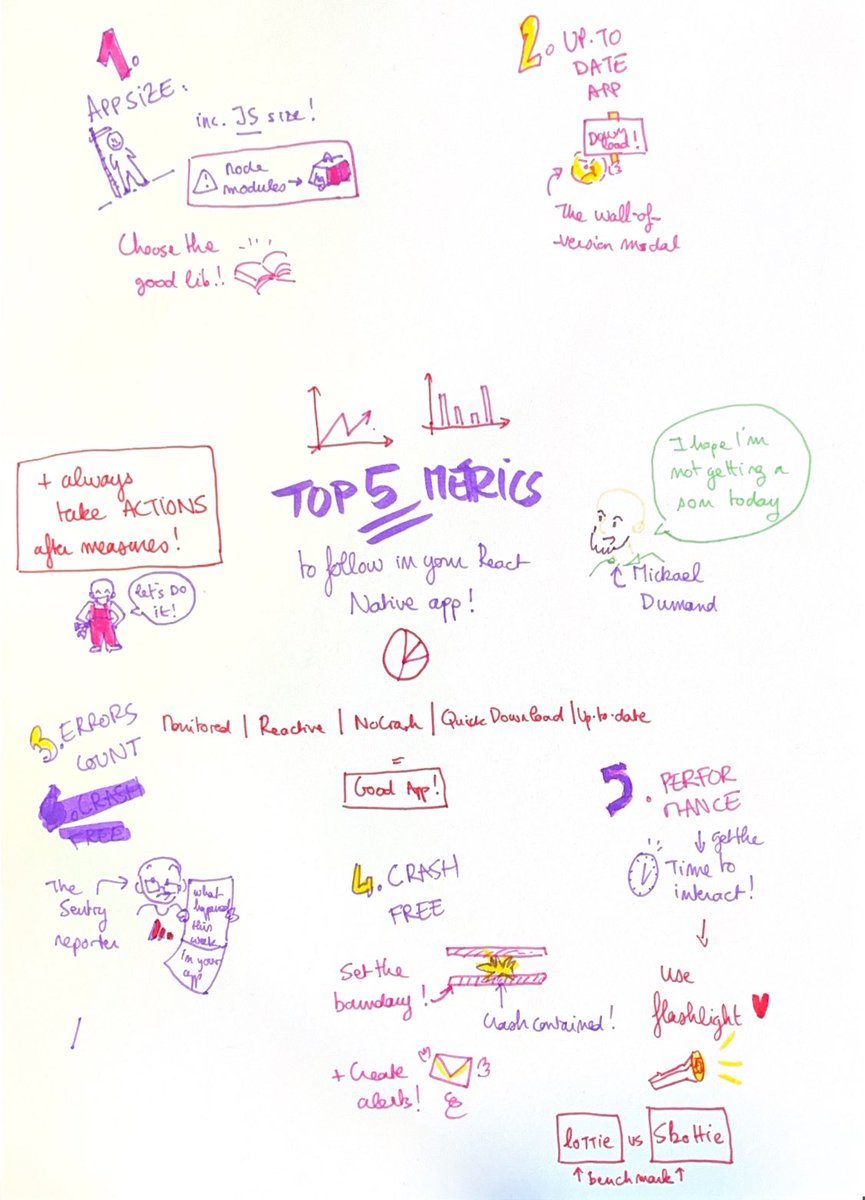 1.
APP SIZE:
inc. JS size!
⚠ node
modules →
kg
Choose the
good lib!!
2. UP-TO
DATE
APP
Down
load!
The wall-of-
version modal
+ always
take ACTIONS
after measures!
let's DO
it!
TOP 5 METRICS
to follow in your React
Native app!
I hope I'm
not getting a
son today
Mickael
Dumand
Monitored | Reactive | No Crash | Quick Download | Up-to-date
=
Good App!
3. ERRORS
COUNT
CRASH
FREE
The
Sentry
reporter
what
happened
this
week
in your
app
4. CRASH
FREE
Set the
boundary!
Crash contained!
+ Create
alerts!
5. PERFOR
MANCE
↓ get the
Time to
interact!
↓
use
flashlight ♥
lottie vs Skottie
↑ benchmark ↑